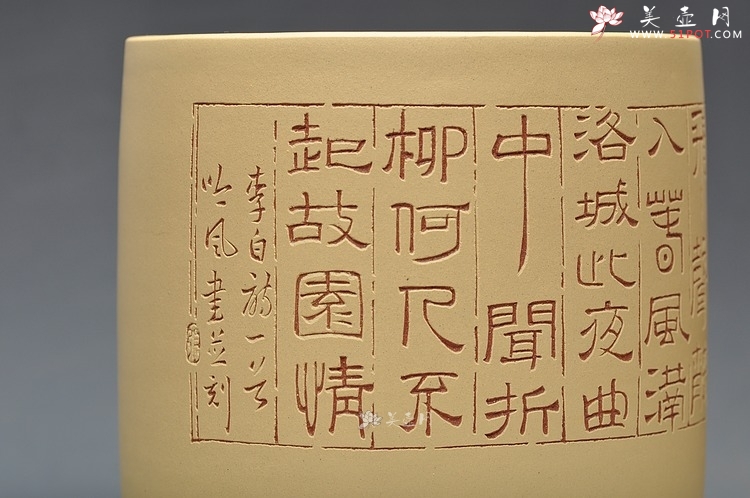 美壶网
WWW.51POT.COM
飛聲散
入春風滿
洛城此夜曲
中聞折
柳何人不
起故園情
李白詩一首
吟風書並刻
美壶网